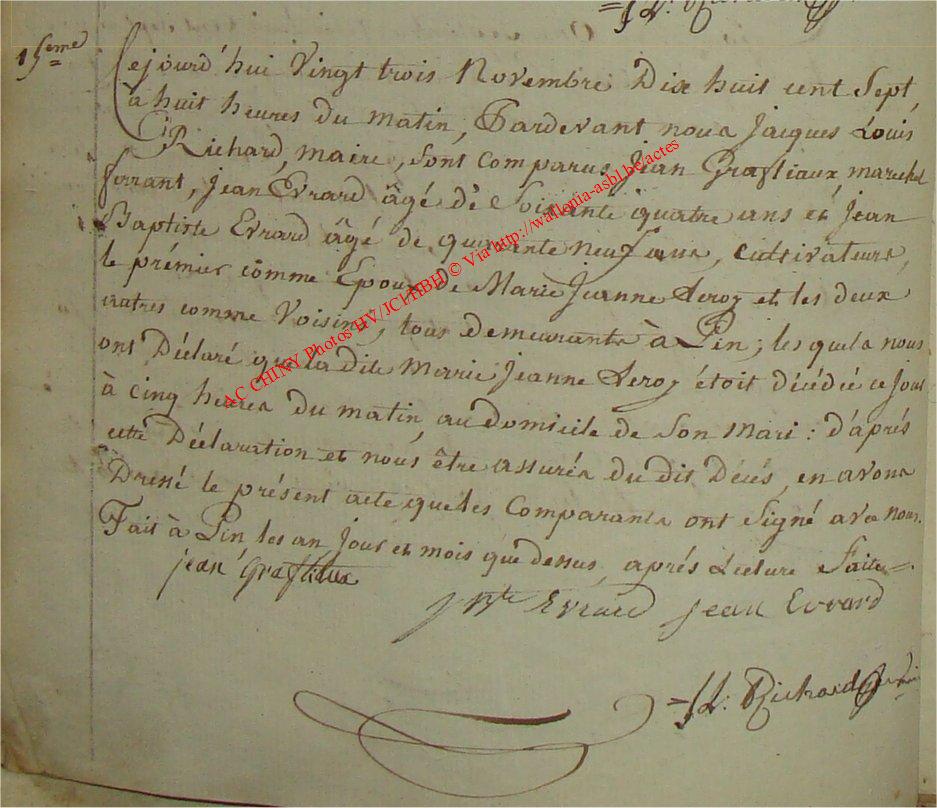 15eme
Cejourd'hui Vingt trois Novembre Dix huit cent Sept,
à huit heures du matin, Pardevant nous Jacques Louis
Richard, maire, sont comparus Jean Graftiaux marechal
ferrant, Jean Evrard âgé de Soixante quatre ans et Jean
Baptiste Evrard âgé de quarante neuf ans, cultivateurs,
le prémier comme Epoux de Marie Jeanne et les deux
autres comme Voisins, tous demeurants à Pin; les quels nous
ont Déclaré que la dite Marie Jeanne étoit décédée ce Jour
à cinq heures du matin, au domicile de Son Mari: d'aprés
cette Déclaration et nous être assurés du dit Décés, en avons
Dressé le présent acte que les Comparants ont Signé avec nous.
Fait à Pin les an Jour et mois que dessus, aprés Lecture Faite=.
jean Graftiaux
J Bte Evrard Jean Evrard
Richard
AC CHINY Photos HV/JCl-HBH © Via http://wallonia-asbl.be/actes